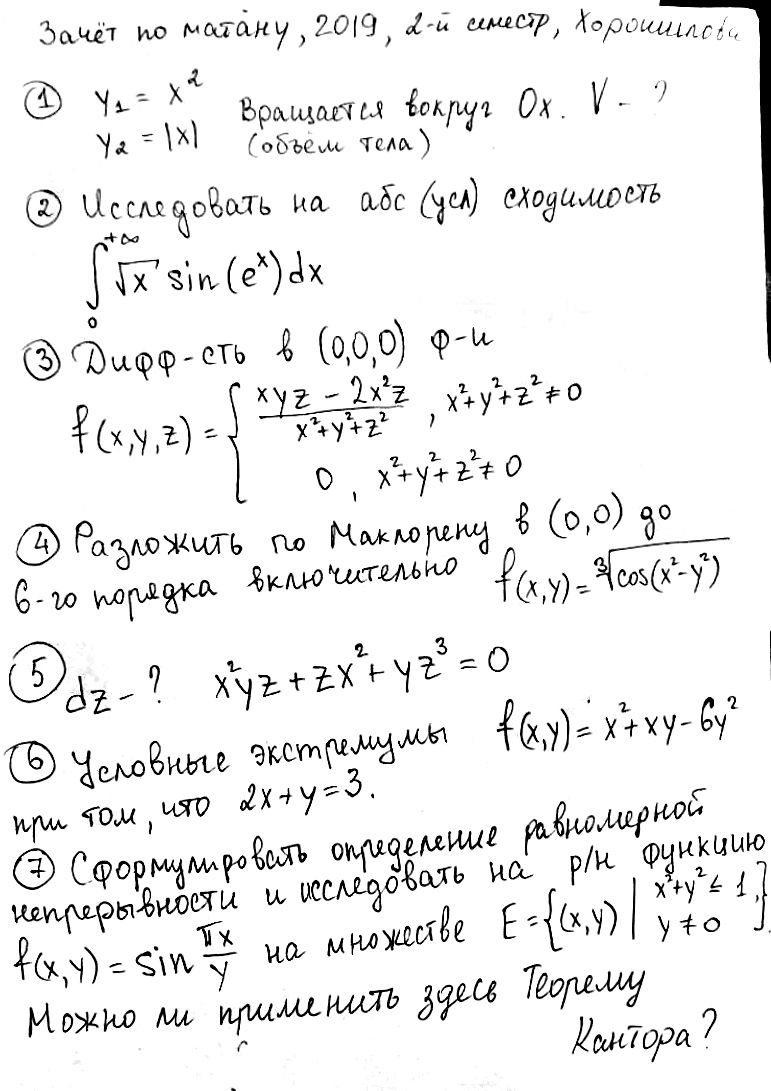 Зачёт по матану, 2019, 2-й семестр, Хорошилова
① y₁ = x² Вращается вокруг Ox. V - ?
y₂ = |x| (объём тела)
② Исследовать на абс (усл) сходимость
∫₀^{+∞} √x sin(eˣ)dx
③ Дифф-сть в (0,0,0) ф-и
f(x,y,z) = { (xyz - 2x²z)/(x²+y²+z²) , x²+y²+z² ≠ 0
0 , x²+y²+z² ≠ 0
④ Разложить по Маклорену в (0,0) до
6-го порядка включительно f(x,y) = ∛cos(x²-y²)
⑤ dz - ? x²yz + zx² + yz³ = 0
⑥ Условные экстремумы f(x,y) = x² + xy - 6y²
при том, что 2x+y=3.
⑦ Сформулировать определение равномерной
непрерывности и исследовать на р/н функцию
f(x,y) = sin πx/y на множестве E = {(x,y) | x²+y² ≤ 1, y ≠ 0}
Можно ли применить здесь Теорему
Кантора?